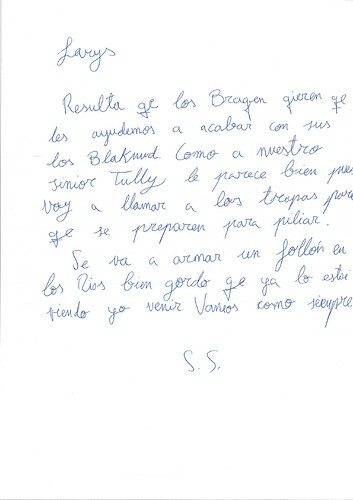 Larys
Resulta qe los Braqen qieren qe
les ayudemos a acabar con sus
los Blakwud. Como a nuestro
sinior Tully le parece bien pues
voy a llamar a las tropas para
qe se preparen para piliar.
Se va a armar un follón en
los Rios bien gordo qe ya lo estoi
viendo yo venir Vamos como siempre
S. S.